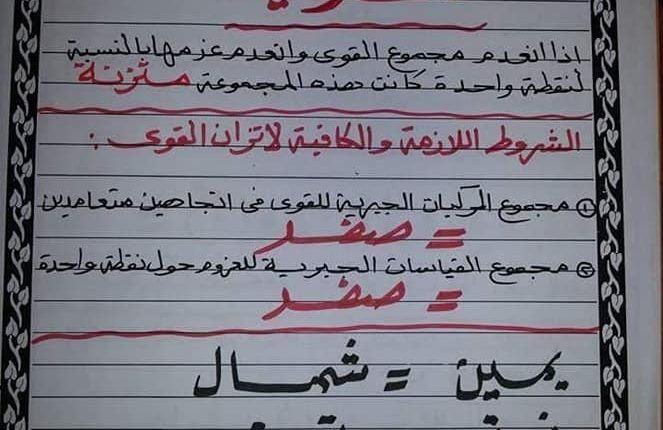 اذا انعدم مجموع القوى وانعدم عزمها بالنسبة
لنقطة واحدة كانت هذه المجموعة متزنة
الشروط اللازمة والكافية لاتزان القوى :
① مجموع المركبات الجبرية للقوى فى اتجاهين متعامدين
= صفر
② مجموع القياسات الجبرية للعزوم حول نقطة واحدة
= صفر
يمين = شمال